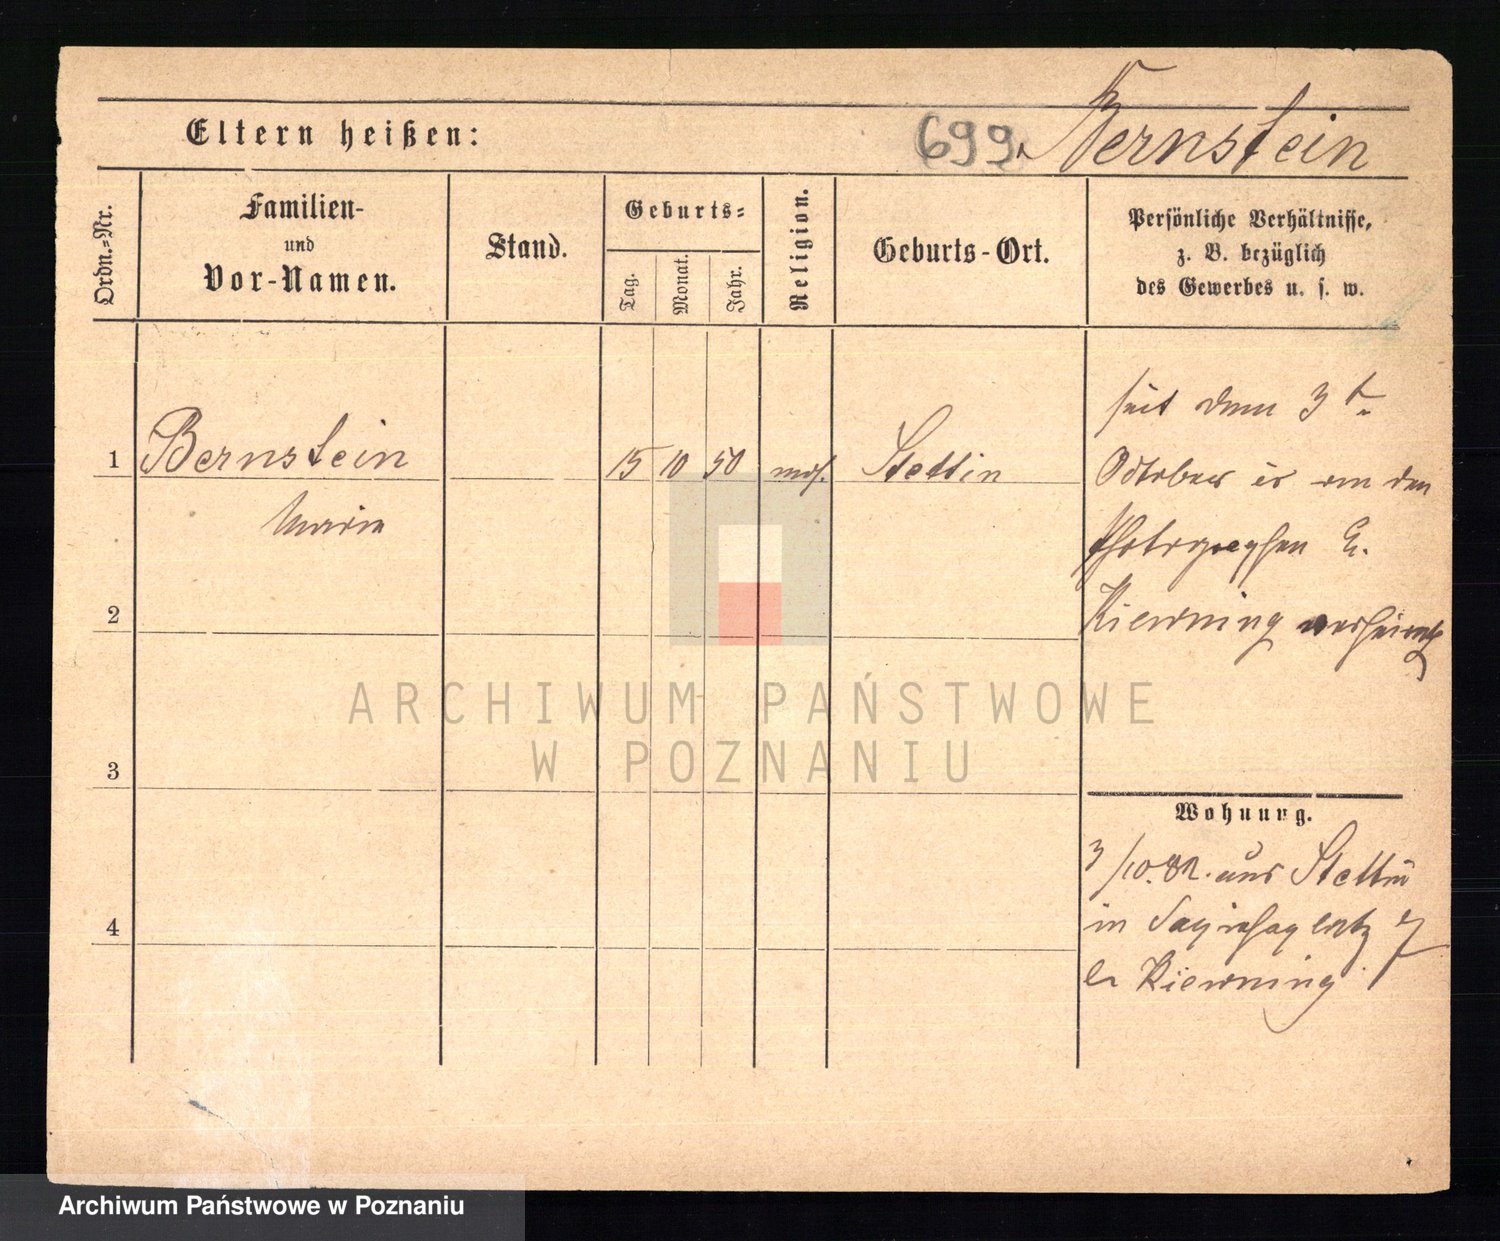 Eltern heißen:
699. Bernstein
Ordn.=Nr.
Familien-
und
Vor-Namen.
Stand.
Geburts=
Tag.
Monat.
Jahr.
Religion.
Geburts-Ort.
Persönliche Verhältnisse,
z. B. bezüglich
des Gewerbes u. s. w.
1 Bernstein 15 10 50 mos. Stettin
Maria
seit dem 3t.
October cr an den
Photographen E.
Kiewning verheirath
2
3
4
ARCHIWUM PAŃSTWOWE
W POZNANIU
Wohnung.
3/10.82. aus Stettin
in Sapiehaplatz 7
b. Kiewning.
Archiwum Państwowe w Poznaniu